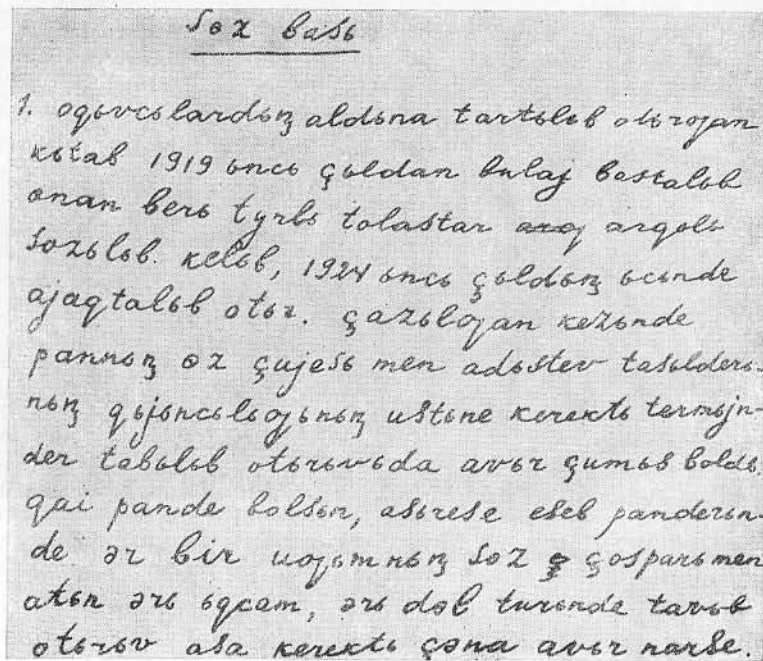 Sɵz basь
1. oqьvcьlardьꞑ aldьna tartьlьb otьrƣan
kьtab 1919 ьncь çьldan bulaj bastalьb
onan berь tyrlь tolastar arqьlь
sozьlьb kelьb, 1924 ьncь çьldьꞑ ьcьnde
ajaqtalьb otьr. çazьlƣan kezьnde
pannьꞑ ɵz çujesь men adьstev tasьlderь-
nьꞑ qьjьncьlьƣьnьꞑ ustьne kerektь termьjn-
der tabьlьb otьrьvьda avьr çumьs boldь.
qai pande bolsьn, asьrese eseb panderьn-
de ər bir uƣьmnьꞑ sɵz çosparь men
atьn ərь ьqcam, ərь dəl turьnde tavьb
otьrьv asa kerektь çəna avьr narse.